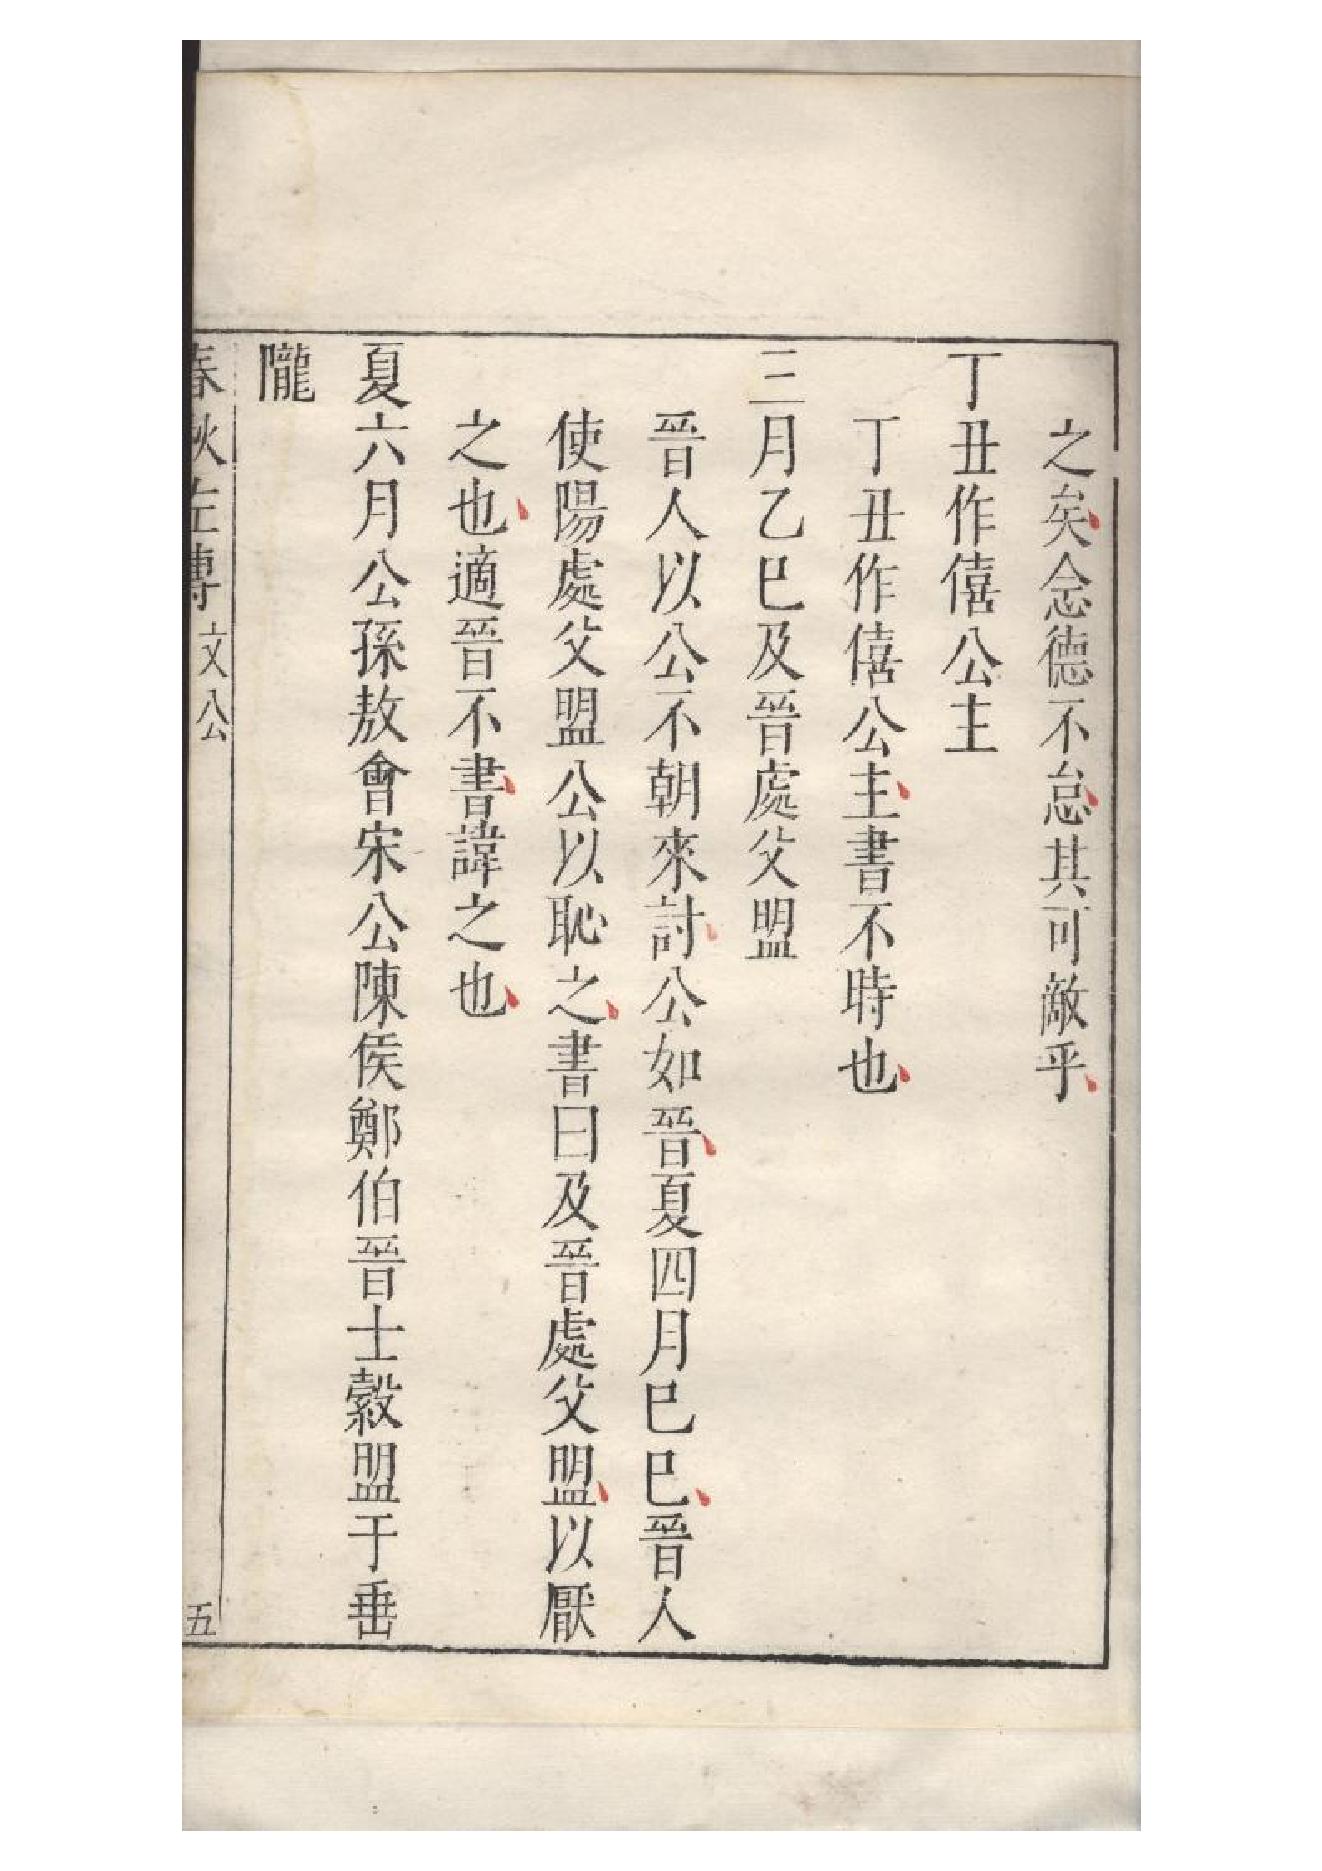 之矣念德不怠其可敵乎
丁丑作僖公主
丁丑作僖公主書不時也
三月乙巳及晉處父盟
晉人以公不朝來討公如晉夏四月巳巳晉人
使陽處父盟公以恥之書曰及晉處父盟以厭
之也適晉不書諱之也
夏六月公孫敖會宋公陳侯鄭伯晉士縠盟于垂
隴
春秋左傳 文公 五